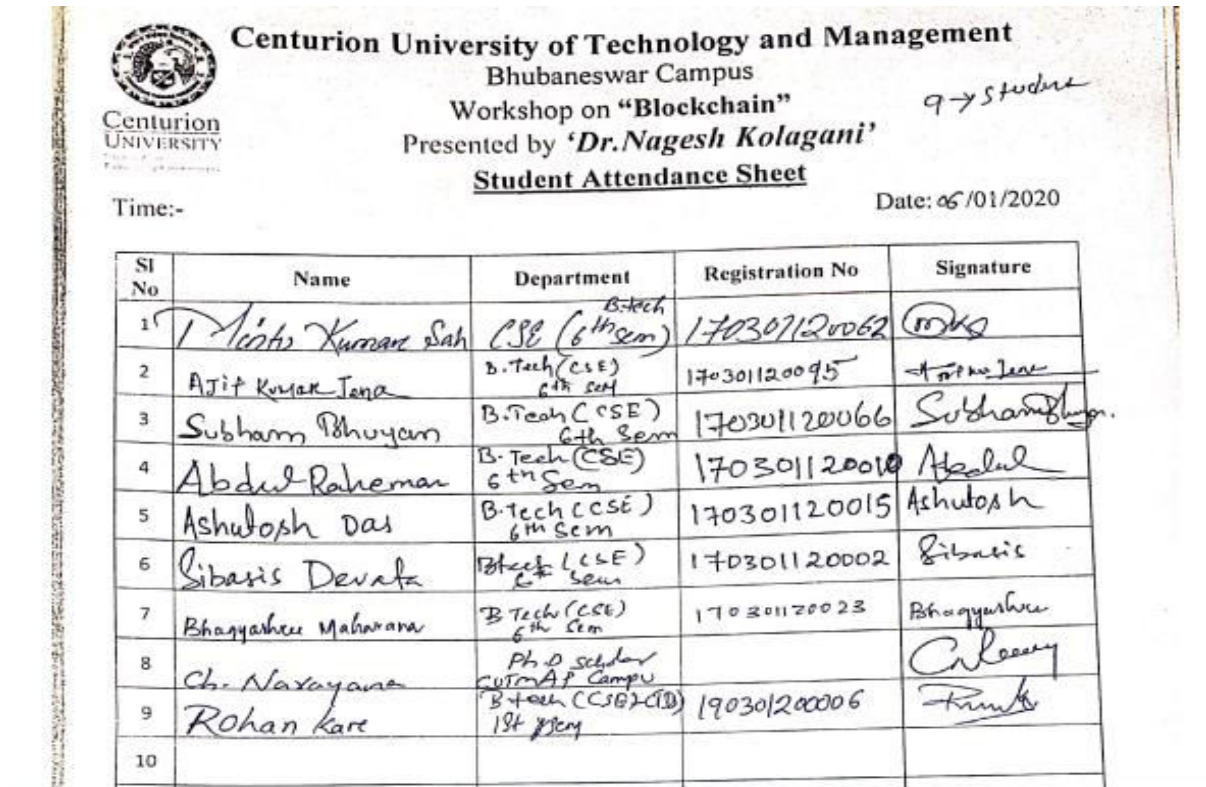 Centurion University of Technology and Management
Bhubaneswar Campus
Workshop on “Blockchain”
9→ Student
Presented by ‘Dr.Nagesh Kolagani’
Centurion
UNIVERSITY
Student Attendance Sheet
Time:-
Date: 06/01/2020
Sl No Name Department Registration No Signature
1 Kumar Sah B.tech
CSE (6th Sem) 170307120062
2 Ajit Kumar Jena B.Tech (CSE)
6th sem 170301120095
3 Subham Bhuyan B.Tech (CSE)
6th Sem 170301120066 Subham Bhuyan.
4 Abdul Raheman B.Tech (CSE)
6th Sem 170301120010 Abdul
5 Ashutosh Das B.tech (CSE)
6th Sem 170301120015 Ashutosh
6 Sibasis Devata Btech (CSE)
6th Sem 170301120002 Sibasis
7 Bhagyashree Maharana B Tech (CSE)
6th Sem 170301120023 Bhagyashree
8 Ch. Narayana Ph.D scholar
CUTMAP Campu
9 Rohan Kare B tech
1st 190301200006
10